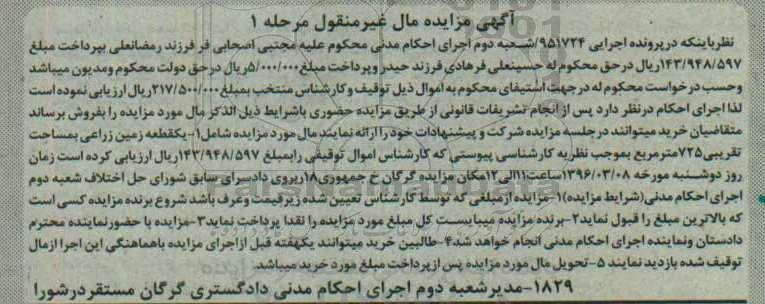 آگهی مزایده مال غیرمنقول مرحله ۱
نظرباینکه درپرونده اجرایی ۹۵۱۷۲۴/شعبه دوم اجرای احکام مدنی محکوم علیه مجتبی اصحابی فر فرزند رمضانعلی بپرداخت مبلغ
۱۴۳/۹۴۸/۵۹۷ریال درحق محکوم له حسینعلی فرهادی فرزند حیدر وپرداخت مبلغ۵/۰۰۰/۰۰۰ریال درحق دولت محکوم ومدیون میباشد
وحسب درخواست محکوم له درجهت استیفای محکوم به اموال ذیل توقیف وکارشناس منتخب بمبلغ۲۱۷/۵۰۰/۰۰۰ریال ارزیابی نموده است
لذا اجرای احکام درنظر دارد پس از انجام تشریفات قانونی از طریق مزایده حضوری باشرایط ذیل الذکر مال مورد مزایده را بفروش برساند
متقاضیان خرید میتوانند درجلسه مزایده شرکت و پیشنهادات خود را ارائه نمایند مال مورد مزایده شامل۱-یکقطعه زمین زراعی بمساحت
تقریبی۷۲۵مترمربع بموجب نظریه کارشناسی پیوستی که کارشناس اموال توقیفی رابمبلغ ۱۴۳/۹۴۸/۵۹۷ریال ارزیابی کرده است زمان
روز دوشنبه مورخه ۱۳۹۶/۰۳/۰۸ساعت۱۱الی۱۲مکان مزایده گرگان خ جمهوری۱۸روبروی دادسرای سابق شورای حل اختلاف شعبه دوم
اجرای احکام مدنی(شرایط مزایده)۱-مزایده ازمبلغی که توسط کارشناس تعیین شده زیرقیمت وعرف باشد شروع برنده مزایده کسی است
که بالاترین مبلغ را قبول نماید۲-برنده مزایده میبایست کل مبلغ مورد مزایده را نقدا پرداخت نماید۳-مزایده با حضورنماینده محترم
دادستان ونماینده اجرای احکام مدنی انجام خواهد شد۴-طالبین خرید میتوانند یکهفته قبل ازاجرای مزایده باهماهنگی این اجرا ازمال
توقیف شده بازدید نمایند ۵-تحویل مال مورد مزایده پس ازپرداخت مبلغ مورد خرید میباشد.
۱۸۲۹-مدیرشعبه دوم اجرای احکام مدنی دادگستری گرگان مستقردرشورا